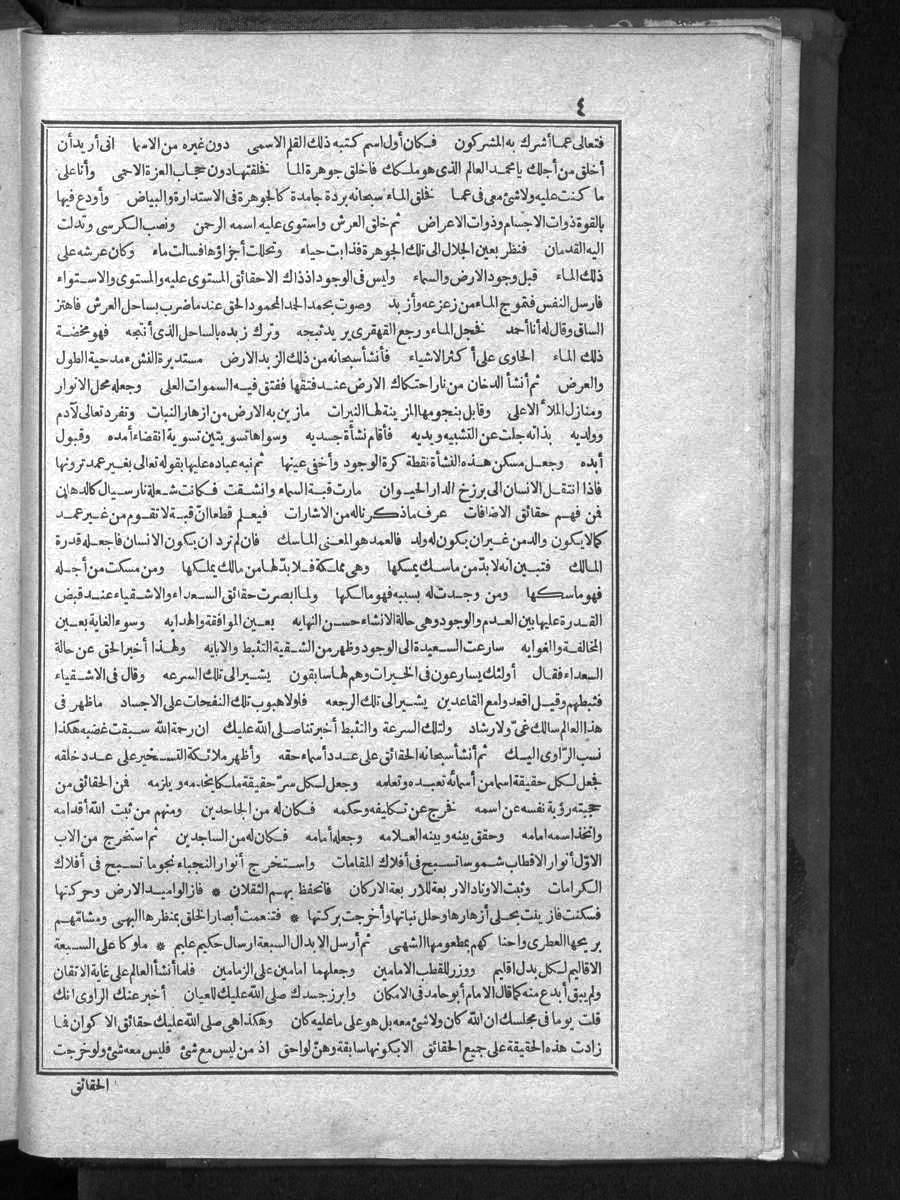 ٤
فتعالى عما أشرك به المشركون فكان أول اسم كتبه ذلك القلم الاسمى دون غيره من الاسما انى أريد أن
أخلق من أجلك يا محمد العالم الذى هو ملكك فاخلق جوهرة الما فخلقتها دون حجاب العزة الاحمى وأنا على
ما كنت عليه ولا شئ معى فى عما فخلق الماء سبحانه بردة جامدة كالجوهرة فى الاستدارة والبياض وأودع فيها
بالقوة ذوات الاجسام وذوات الاعراض ثم خلق العرش واستوى عليه اسمه الرحمن ونصب الكرسى وتدلت
اليه القدمان فنظر بعين الجلال الى تلك الجوهرة فذابت حياء وتحللت أجزاؤها فسالت ماء وكان عرشه على
ذلك الماء قبل وجود الارض والسماء وليس فى الوجود اذ ذاك الا حقائق المستوى عليه والمستوى والاستواء
فارسل النفس فتموج الماء من زعزعه وأزبد وصوت بحمد الحد المحمود الحق عند ما ضرب بساحل العرش فاهتز
الساق وقال له أنا أحمد فخجل الماء ورجع القهقرى يريد ثبجه وترك زبده بالساحل الذى أنتجه فهو مخضة
ذلك الماء الحاوى على أكثر الاشياء فأنشأ سبحانه من ذلك الزبد الارض مستديرة النشء مدحية الطول
والعرض ثم أنشأ الدخان من نار احتكاك الارض عند فتقها ففتق فيه السموات العلى وجعله محل الانوار
ومنازل الملأ الاعلى وقابل بنجومها المزينة لها النيرات ما زين به الارض من ازهار النبات وتفرد تعالى لآدم
وولديه بذاته جلت عن التشبيه ويديه فأقام نشأة جسديه وسواها تسويتين تسوية انقضاء أمده وقبول
أبده وجعل مسكن هذه النشأة نقطة كرة الوجود وأخفى عينها ثم نبه عباده عليها بقوله تعالى بغير عمد ترونها
فاذا انتقل الانسان الى برزخ الدار الحيوان مارت قبة السماء وانشقت فكانت شعلة نار سيال كالدهان
فمن فهم حقائق الاضافات عرف ما ذكرناله من الاشارات فيعلم قطعا انّ قبة لا تقوم من غير عمد
كما لا يكون والد من غير ان يكون له ولد فالعمد هو المعنى الماسك فان لم ترد ان يكون الانسان فاجعله قدرة
المالك فتبين انه لا بدّ من ماسك يمسكها وهى مملكة فلا بدّ لها من مالك يملكها ومن مسكت من أجله
فهو ماسكها ومن وجدت له بسببه فهو مالكها ولما ابصرت حقائق السعداء والاشقياء عند قبض
القدرة عليها بين العدم والوجود وهى حالة الانشاء حسن النهايه بعين الموافقة والهدايه وسوء الغاية بعين
المخالفة والغوايه سارعت السعيدة الى الوجود وظهر من الشقية التثبط والابايه ولهذا أخبر الحق عن حالة
السعداء فقال أولئك يسارعون فى الخيرات وهم لها سابقون يشير الى تلك السرعه وقال فى الاشقياء
فثبطهم وقيل اقعدوا مع القاعدين يشير الى تلك الرجعه فلولا هبوب تلك النفحات على الاجساد ما ظهر فى
هذا العالم سالك غىّ ولا رشاد ولتلك السرعة والتثبط أخبرتنا صلى الله عليك ان رحمة الله سبقت غضبه هكذا
نسب الرّاوى اليك ثم أنشأ سبحانه الحقائق على عدد أسماء حقه وأظهر ملائكة التسخير على عدد خلقه
فجعل لكل حقيقة اسما من أسمائه تعبده وتعلمه وجعل لكل سرّ حقيقة ملكا يخدمه ويلزمه فمن الحقائق من
حجبته رؤية نفسه عن اسمه فخرج عن تكليفه وحكمه فكان له من الجاحدين ومنهم من ثبت الله أقدامه
واتخذ اسمه امامه وحقق بينه وبينه العلامه وجعله أمامه فكان له من الساجدين ثم استخرج من الاب
الاوّل أنوار الاقطاب شموسا تسبح فى أفلاك المقامات واستخرج أنوار النجباء نجوما تسبح فى أفلاك
الكرامات وثبت الاوتاد الاربعة للاربعة الاركان فانحفظ بهم الثقلان * فازالوا ميد الارض وحركتها
فسكنت فازينت بحلى أزهارها وحلل نباتها وأخرجت بركتها * فتنعمت أبصار الخلق بمنظرها البهى ومشامّهم
بريحها العطرى واحناكهم بمطعومها الشهى ثم أرسل الابدال السبعة ارسال حكيم عليم * ملوكا على السبعة
الاقاليم لكل بدل اقليم ووزر للقطب الامامين وجعلهما امامين على الزمامين فلما أنشأ العالم على غاية الاتقان
ولم يبق أبدع منه كما قال الامام أبو حامد فى الامكان وابرز جسدك صلى الله عليك للعيان أخبر عنك الراوى انك
قلت يوما فى مجلسك ان الله كان ولا شئ معه بل هو على ما عليه كان وهكذا هى صلى الله عليك حقائق الاكوان فما
زادت هذه الحقيقة على جميع الحقائق الا بكونها سابقة وهنّ لواحق اذ من ليس مع شئ فليس معه شئ ولو خرجت
الحقائق